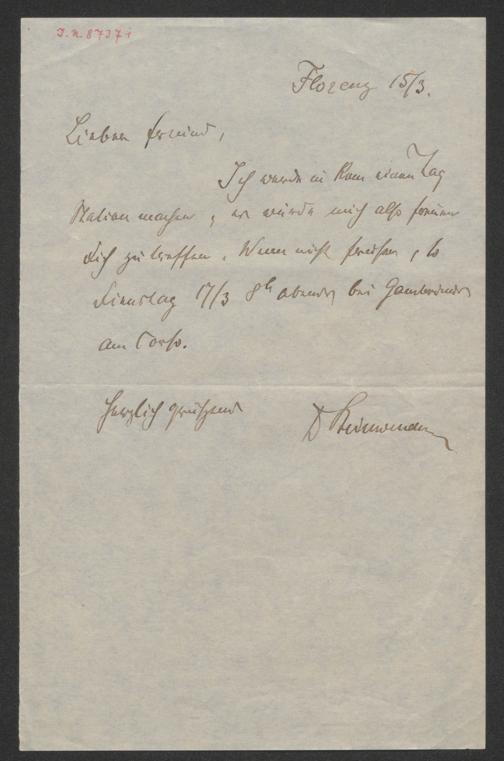 I.N. 87371
Florenz 15/3.
Lieber Freund,
Ich werde in Rom einen Tag
Station machen, es würde mich also freuen
dich zu treffen. Wenn nicht früher, so
Dienstag 17/3 8h abends bei Gambrinus
am Corso.
Herzlich grüßend
D